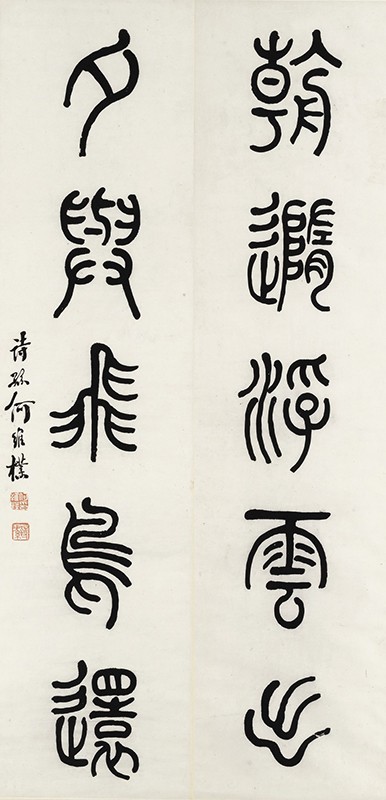 朝隨浮雲出
夕與飛鳥還
詩孫何維樸